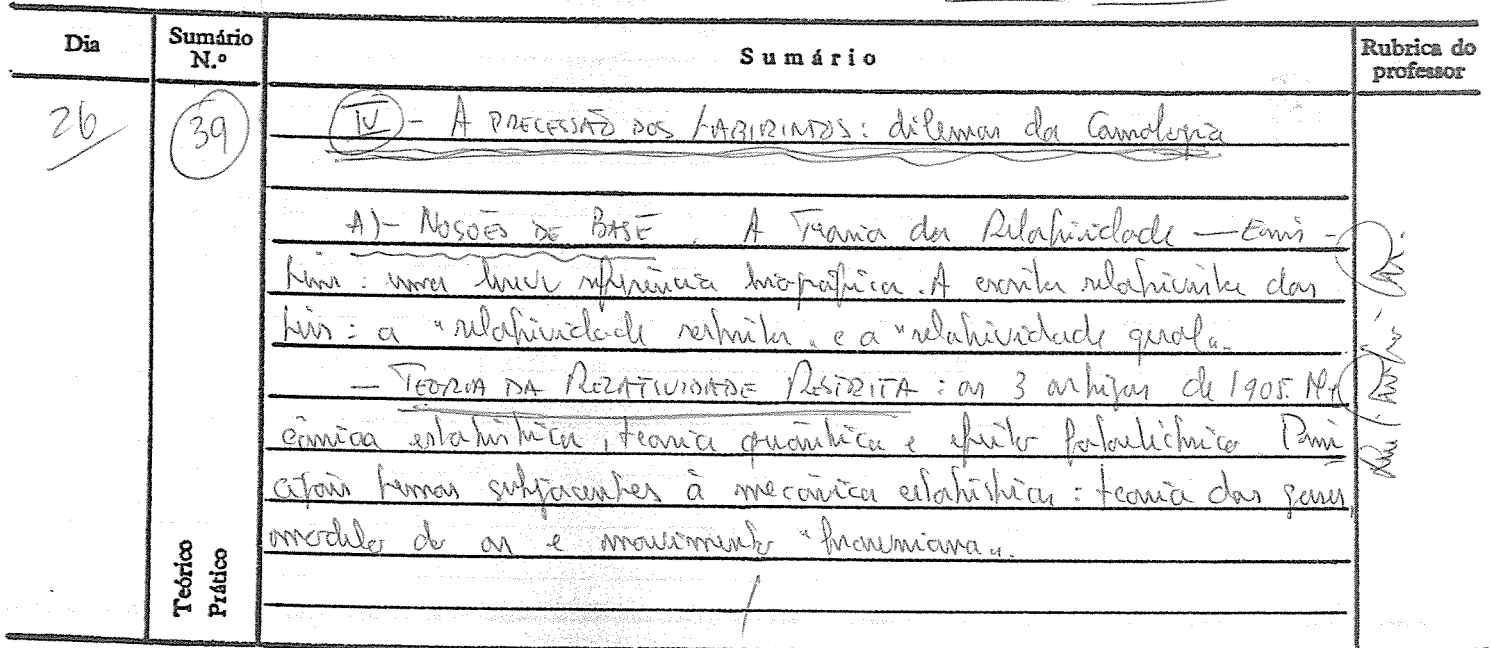 Dia Sumário N.º Sumário Rubrica do professor
26 39 IV - A PRECESSÃO DOS LABIRINTOS: dilemas da Cosmologia
A) - NOÇÕES DE BASE. A Teoria da Relatividade — Eins-
tein: uma breve referência biográfica. A escrita relativista das
leis: a "relatividade restrita" e a "relatividade geral".
— TEORIA DA RELATIVIDADE RESTRITA: os 3 artigos de 1905. Me
cânica estatística, teoria quântica e efeito fotoeléctrico. Prin
cipais temas subjacentes à mecânica estatística: teoria dos gases,
modelo do ar e movimento "browniano".
Teórico
Prático